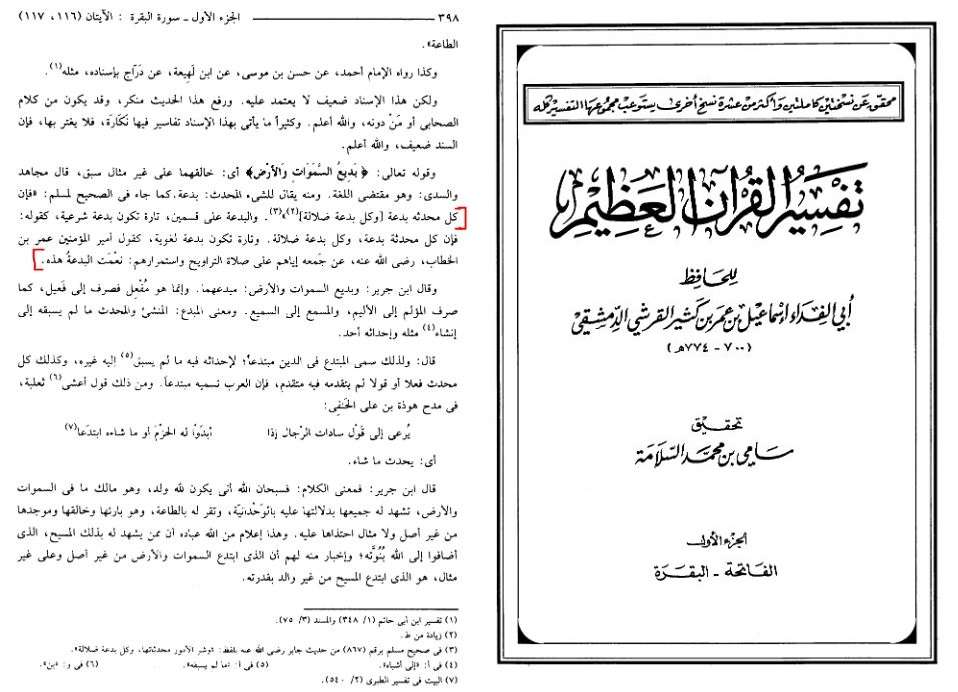 ٣٩٨ ــــــ الجزء الأول ـ سورة البقرة : الآيتان (١١٦، ١١٧)
الطاعة».
وكذا رواه الإمام أحمد، عن حسن بن موسى، عن ابن لَهِيعة، عن دَرّاج بإسناده، مثله(١).
ولكن هذا الإسناد ضعيف لا يعتمد عليه. ورفع هذا الحديث منكر، وقد يكون من كلام
الصحابى أو مَنْ دونه، والله أعلم. وكثيراً ما يأتى بهذا الإسناد تفاسير فيها نَكَارَة، فلا يغتر بها، فإن
السند ضعيف، والله أعلم.
وقوله تعالى: ﴿ بَدِيعُ السَّمَوَاتِ وَالأَرْضِ﴾ أى: خالقهما على غير مثال سبق، قال مجاهد
والسدى: وهو مقتضى اللغة. ومنه يقال للشىء المحدث: بدعة. كما جاء فى الصحيح لمسلم: «فإن
كل محدثه بدعة [وكل بدعة ضلالة](٢)»(٣). والبدعة على قسمين، تارة تكون بدعة شرعية، كقوله:
فإن كل محدثة بدعة، وكل بدعة ضلالة. وتارة تكون بدعة لغوية، كقول أمير المؤمنين عمر بن
الخطاب، رضى الله عنه، عن جَمعه إياهم على صلاة التراويح واستمرارهم: نعْمَت البدعةُ هذه.
وقال ابن جرير: وبديع السموات والأرض: مبدعهما. وإنما هو مُفْعِل فصرف إلى فَعيل، كما
صرف المؤلم إلى الأليم، والمسمع إلى السميع. ومعنى المبدع: المنشئ والمحدث ما لم يسبقه إلى
إنشاء(٤) مثله وإحداثه أحد.
قال: ولذلك سمى المبتدع فى الدين مبتدعاً؛ لإحداثه فيه ما لم يسبق(٥) إليه غيره، وكذلك كل
محدث فعلا أو قولا لم يتقدمه فيه متقدم، فإن العرب تسميه مبتدعاً. ومن ذلك قول أعشى(٦) ثعلبة،
فى مدح هوذة بن على الحَنفِى:
يُرعى إلى قَوْل سادات الرّجال إذا أبدَوْا له الحزْمَ أو ما شاءه ابتدَعا(٧)
أى: يحدث ما شاء.
قال ابن جرير: فمعنى الكلام: فسبحان الله أنى يكون لله ولد، وهو مالك ما فى السموات
والأرض، تشهد له جميعها بدلالتها عليه بالوَحْدانيّة، وتقر له بالطاعة، وهو بارئها وخالقها وموجدها
من غير أصل ولا مثال احتذاها عليه. وهذا إعلام من الله عباده أن ممن يشهد له بذلك المسيح، الذى
أضافوا إلى الله بُنُوَّته؛ وإخبار منه لهم أن الذى ابتدع السموات والأرض من غير أصل وعلى غير
مثال، هو الذى ابتدع المسيح من غير والد بقدرته.
(١) تفسير ابن أبى حاتم (١/ ٣٤٨) والمسند (٣/ ٧٥).
(٢) زيادة من ط.
(٣) فى صحيح مسلم برقم (٨٦٧) من حديث جابر رضى الله عنه بلفظ: «وشر الأمور محدثاتها، وكل بدعة ضلالة».
(٤) فى أ: «إلى أشباه». (٥) فى أ: «ما لم يسبقه». (٦) فى و: «بن».
(٧) البيت فى تفسير الطبرى (٢/ ٥٤٠).
محقق عن نسختين كاملتين وأكثر من عشرة نسخ أخرى يستوعب مجموعها التفسير كله
تفسير القرآن العظيم
للحافظ
أبي الفداء إسماعيل بن عمر بن كثير القرشي الدمشقي
(٧٠٠ - ٧٧٤هـ)
تحقيق
سامي بن محمد السلامة
الجزء الأول
الفاتحة - البقرة